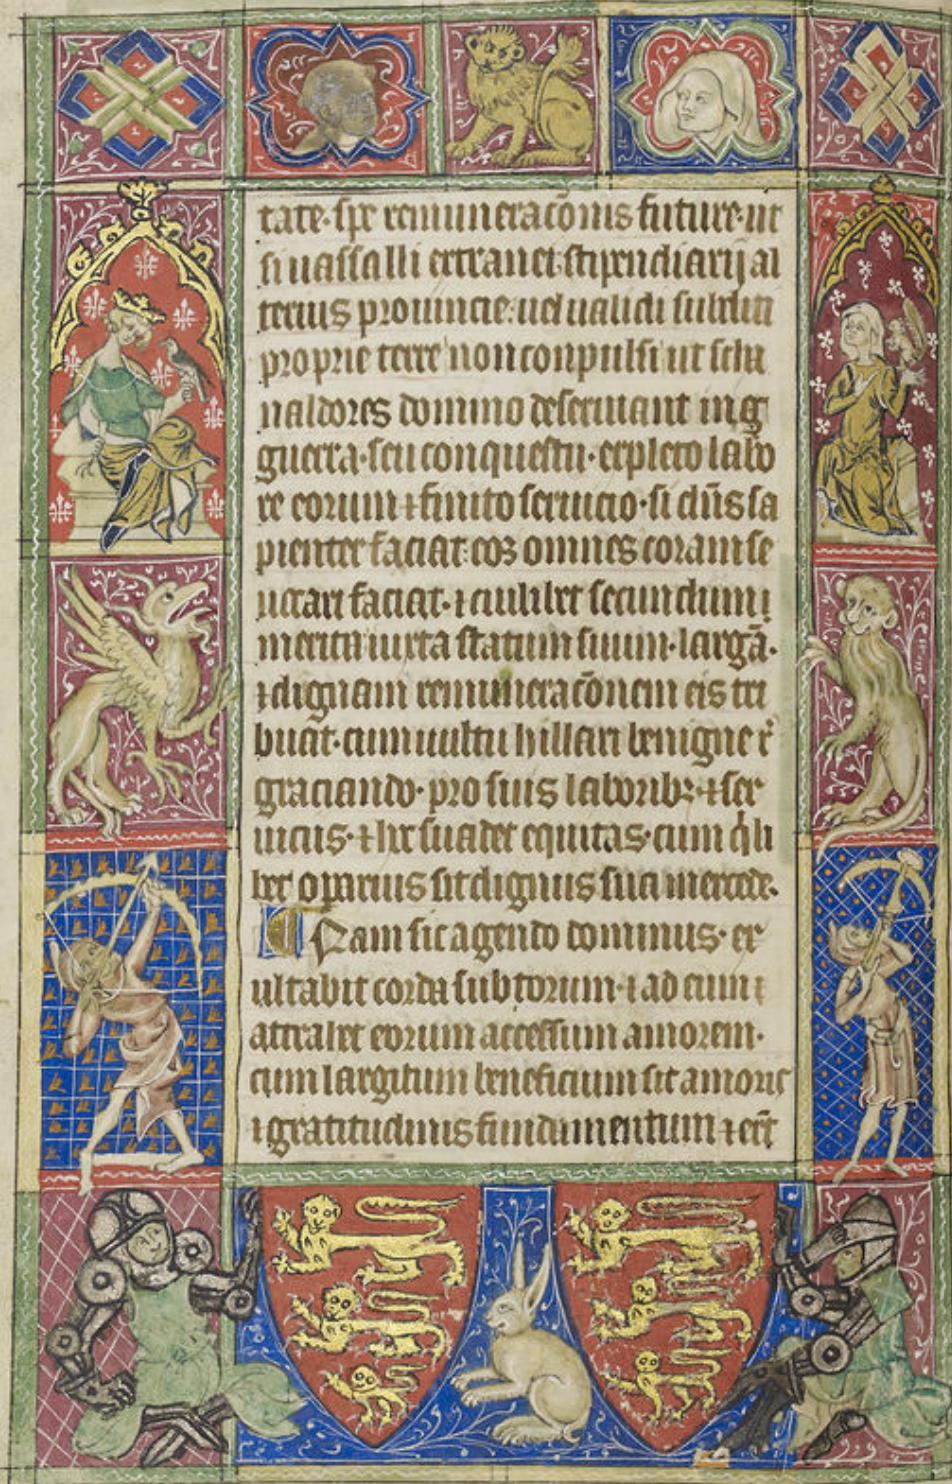 tate. spe remuneracōnis future. ut
si uassalli extranei stipendiarij al
terius prouincie. uel ualidi subditi
proprie terre non conpulsi ut scla
ualdores domino deseruiant in g
guerra. seu conquestu. expleto labo
re eorum ⁊ finito seruicio. si dn̄s sa
pienter faciat eos omnes coram se
uocari faciat. ⁊ cuilibet secundum
merita iuxta statum suum. largā.
⁊ dignam remuneracōnem eis tri
buat. cum uultu hillari benigne r̄
graciando. pro suis laboribꝫ ⁊ ser
uiciis. ⁊ hic suadet equitas. cum qͥli
bet oparius sit dignus sua mercede.
Nam sic agendo dominus. ex
ultabit corda subtorum. ⁊ ad eum
attrahet eorum accessum amorem.
cum largitum beneficium sit amoris
⁊ gratitudinis fundamentum ⁊ cer̄t